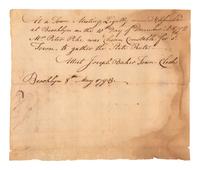 At a Town Meeting Legally
at Brooklyn on the 4th Day of December
Mr. Peter Pike was Chosen Constable for
Town, to gather the State Rates
Attest Joseph Baker Town Clerk
Brooklyn 8th May 1793